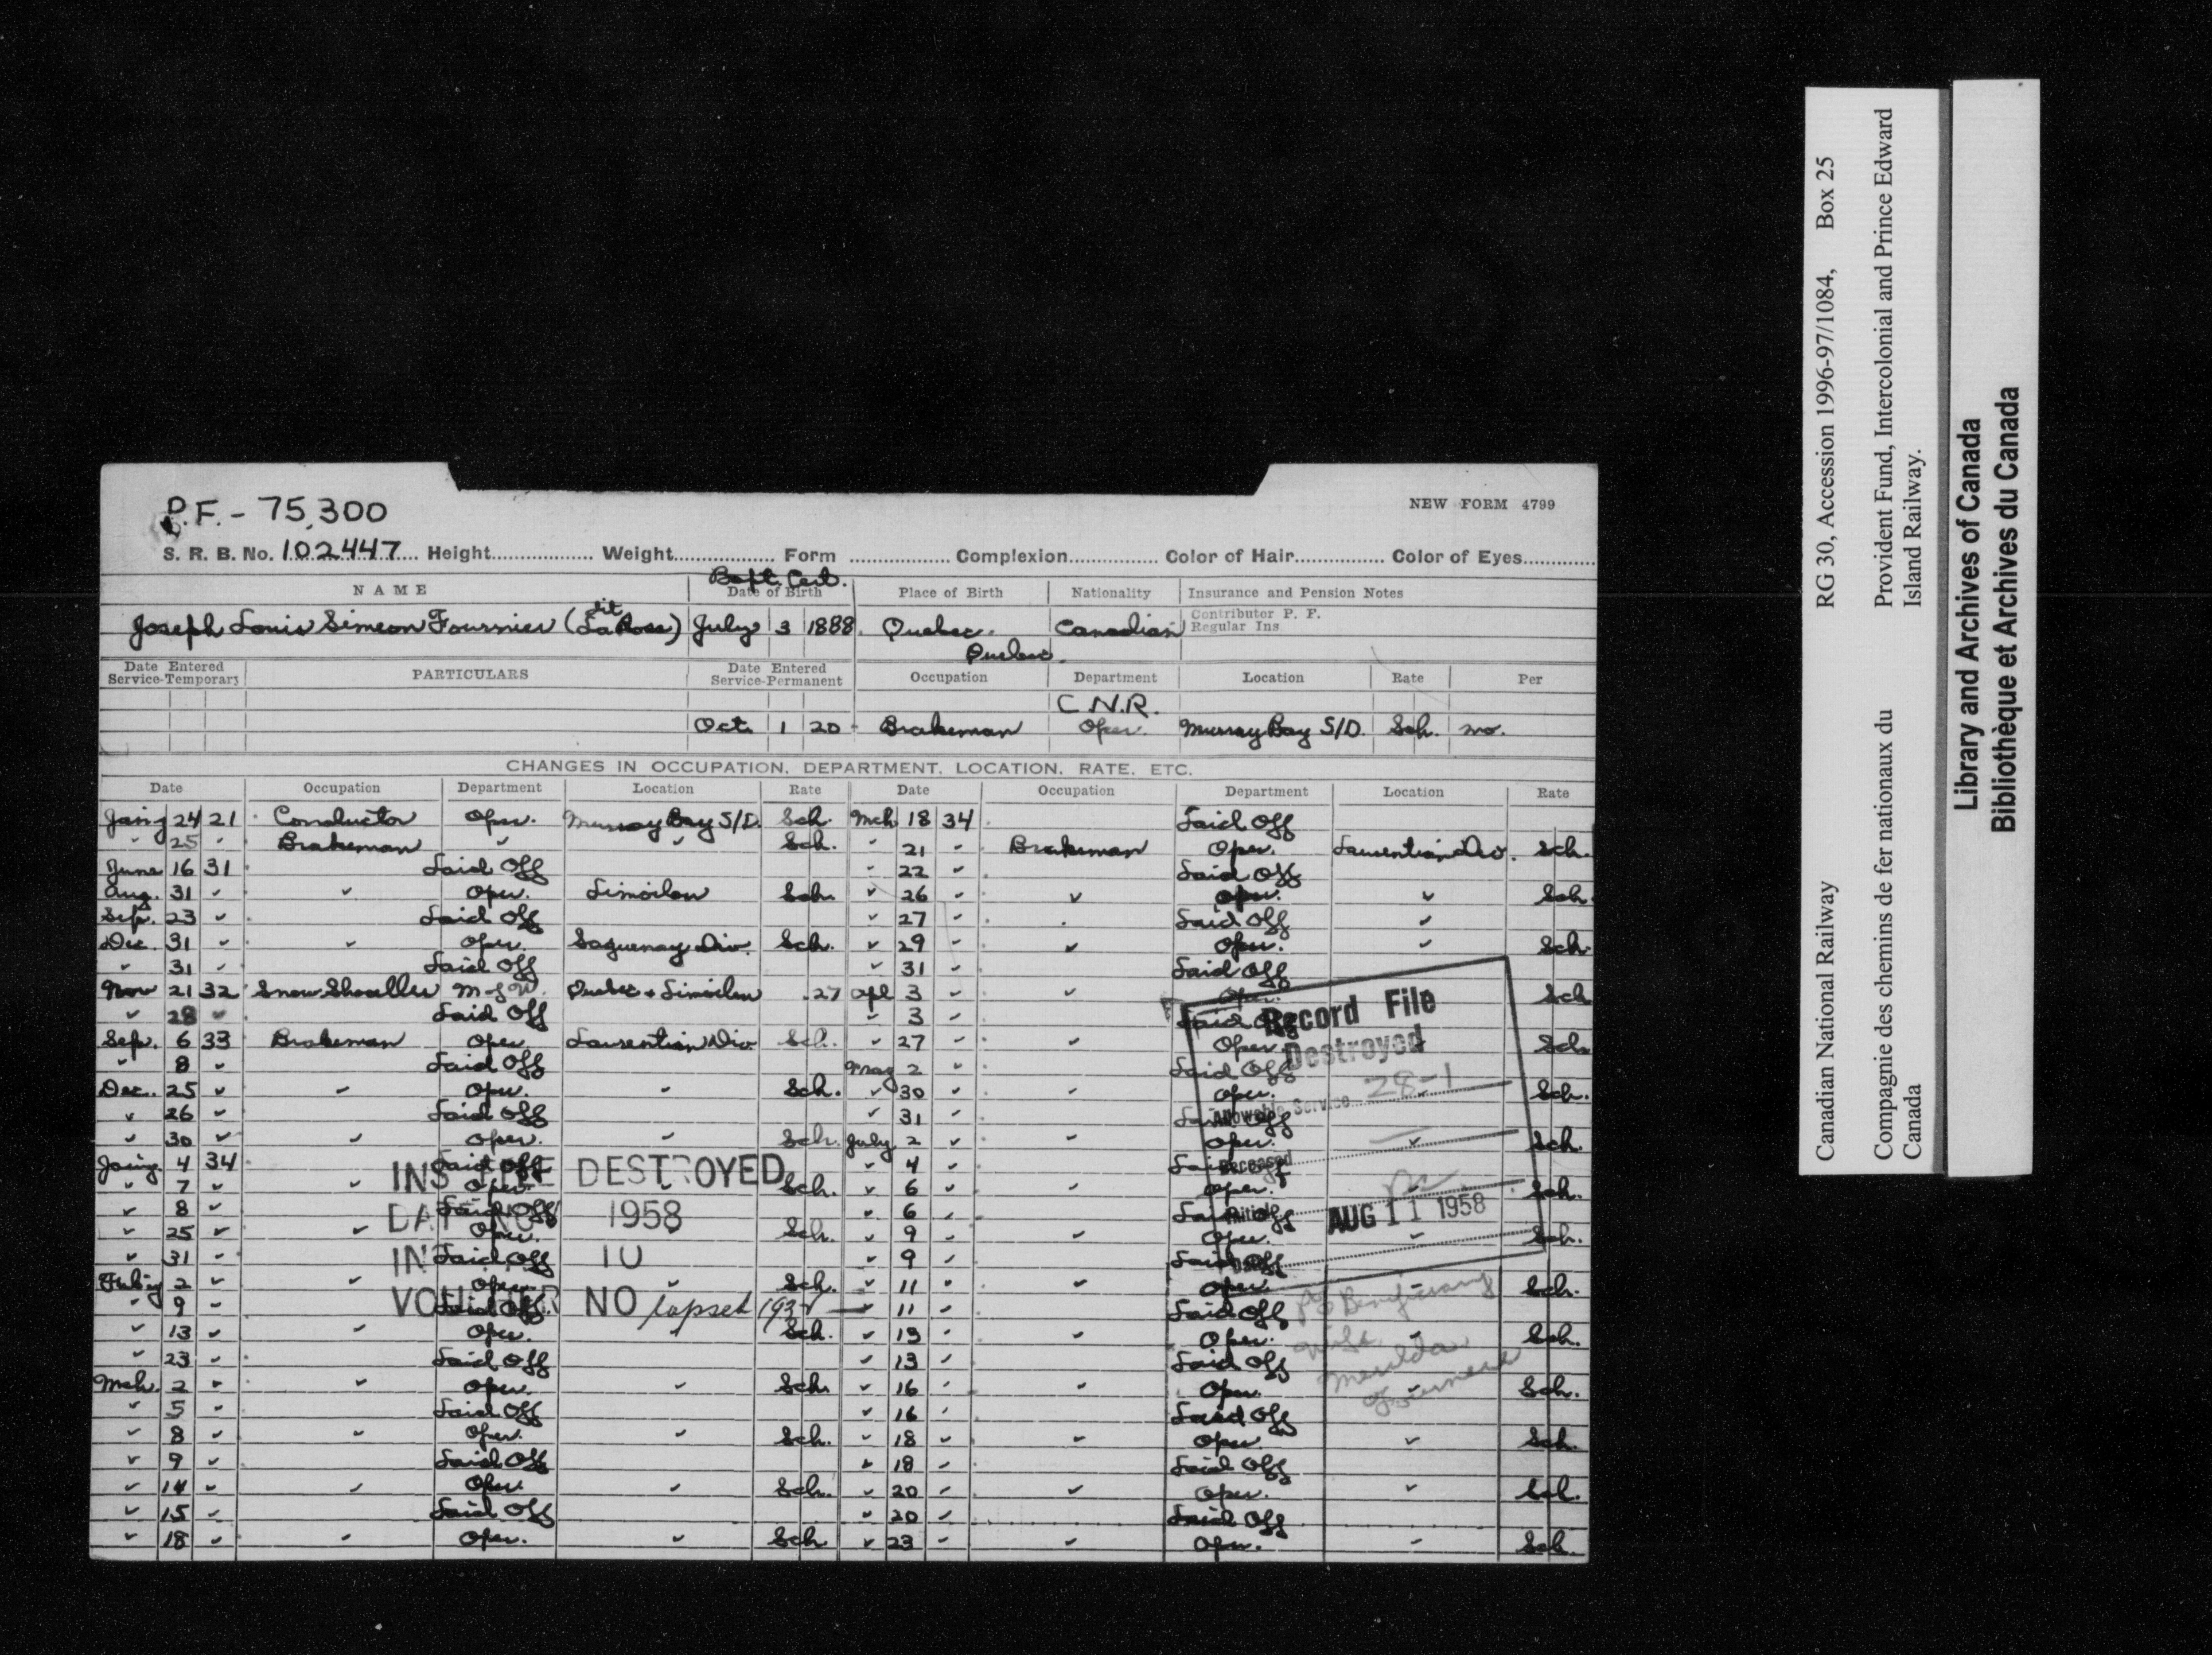 P.F. - 75,300
NEW FORM 4799
S. R. B. No. 102447 Height Weight Form Complexion Color of Hair Color of Eyes
Bapt. Cert.
NAME Date of Birth Place of Birth Nationality Insurance and Pension Notes
Joseph Louis Simeon Fournier (dit LaRose) July 3 1888 Quebec. Canadian Contributor P. F.
Regular Ins
Quebec.
Date Entered Service-Temporary PARTICULARS Date Entered Service-Permanent Occupation Department Location Rate Per
C.N.R.
Oct. 1 20 Brakeman Oper. Murray Bay S/D. Sch. mo.
CHANGES IN OCCUPATION, DEPARTMENT, LOCATION, RATE, ETC.
Date Occupation Department Location Rate Date Occupation Department Location Rate
24 21 Conductor Oper. Murray Bay S/D. Sch. Mch 18 34 Laid Off
" 25 " Brakeman " " Sch. " 21 " Brakeman Oper. Laurentian Div. Sch.
June 16 31 Laid Off " 22 " Laid Off
Aug. 31 " " Oper. Limoilou Sch. " 26 " " Oper. " Sch.
Sep. 23 " Laid Off " 27 " Laid Off "
Dec. 31 " " Oper. Saguenay Div. Sch. " 29 " " Oper. " Sch.
" 31 " Laid Off " 31 " Laid Off
Nov 21 32 Snow Shoveller M of W. Quebec & Limoilou .27 Apl 3 " " Oper. Sch
" 28 " Laid Off " 3 " Laid Off
Sep. 6 33 Brakeman Oper Laurentian Div. Sch. " 27 " " Oper. Sch
" 8 " Laid Off May 2 " Laid Off
Dec. 25 " " Oper. " Sch. " 30 " " Oper. " Sch.
" 26 " Laid Off " 31 " Laid Off
" 30 " " Oper. " Sch. July 2 " " Oper. " Sch.
4 34 Laid Off " 4 " Laid Off
" 7 " " Oper. " Sch. " 6 " " Oper. " Sch.
" 8 " Laid Off " 6 " Laid Off
" 25 " " Oper. Sch. " 9 " " Oper. " Sch.
" 31 " Laid Off " 9 " Laid Off
2 " " Oper. " Sch. " 11 " " Oper. " Sch.
" 9 " Laid Off " 11 " Laid Off
" 13 " " Oper. " Sch. " 13 " " Oper. " Sch.
" 23 " Laid Off " 13 " Laid Off
Mch. 2 " " Oper. " Sch. " 16 " " Oper. " Sch.
" 5 " Laid Off " 16 " Laid Off
" 8 " " Oper. " Sch. " 18 " " Oper. " Sch.
" 9 " Laid Off " 18 " Laid Off
" 14 " " Oper. " Sch. " 20 " " Oper. " Sch.
" 15 " Laid Off " 20 " Laid Off
" 18 " " Oper. " Sch " 23 " " Oper. " Sch.
Record File
Destroyed
Allowable Service 28-1
Deceased
Initial
AUG 11 1958
INS DESTROYED
1958
NO lapsed
Wife
Fournier
Canadian National Railway RG 30, Accession 1996-97/1084, Box 25
Compagnie des chemins de fer nationaux du Canada
Provident Fund, Intercolonial and Prince Edward Island Railway.
Library and Archives of Canada
Bibliothèque et Archives du Canada